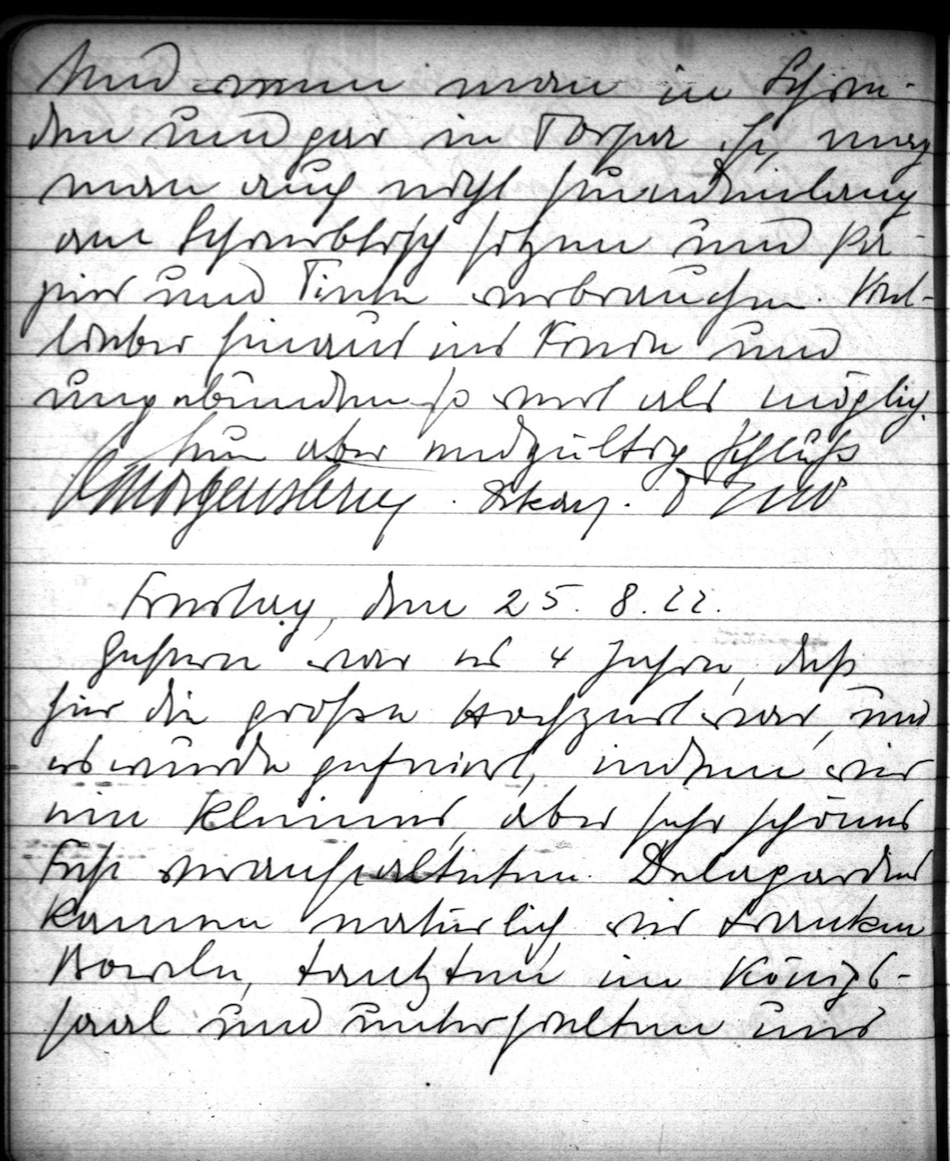 Und wenn man in Schwe-
den und gar in Torpa ist, mag
man auch nicht stundenlang
am Schreibtisch sitzen und Pa-
pier und Tinte verbrauchen. Viel-
lieber hinaus ins Freie und
ungebunden so viel als möglich.
Nun aber endgültig Schluß
Morgenstern.
Freitag, den 25. 8. 22.
Gestern war es 4 Jahre, daß
hier die große Hochzeit war, und
es wurde gefeiert, indem wir
ein kleines, aber sehr schönes
Fest veranstalteten. Delagardies
kamen natürlich, wir tranken
Bowle, tanzten im Königs-
saal und unterhielten uns